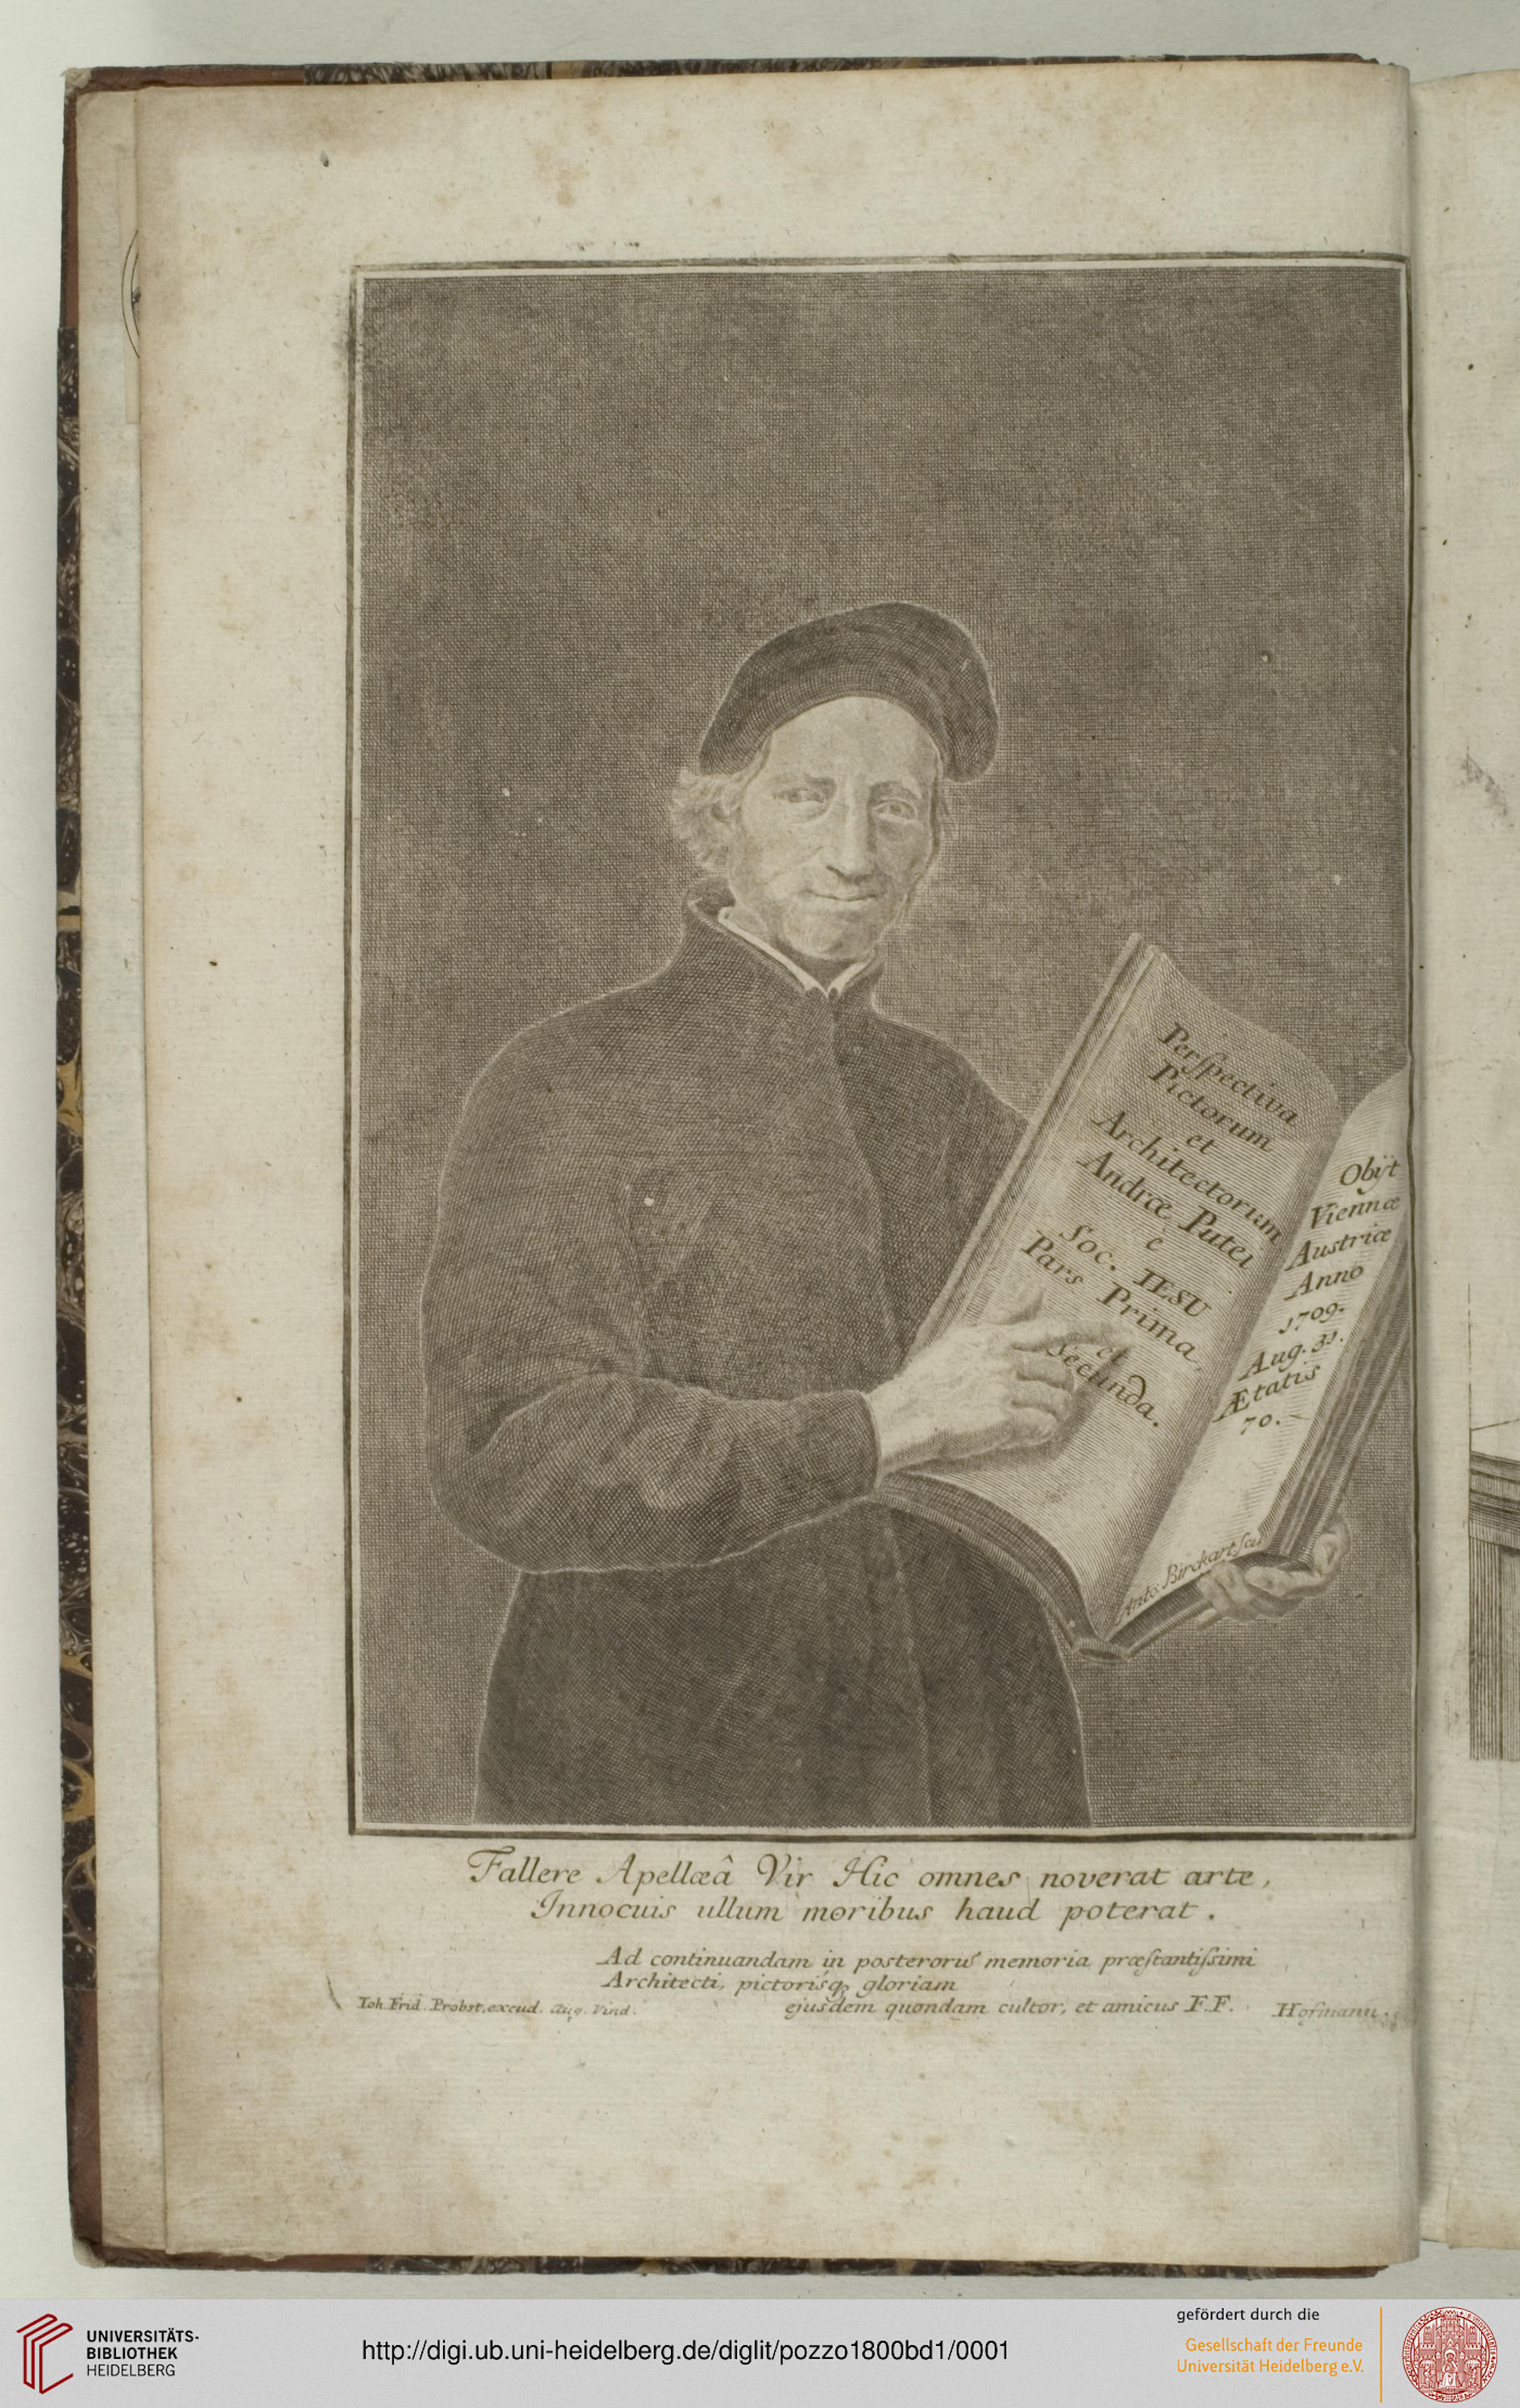 Perſpectiva
Pictorum
et
Architectorum
Andræ Putei
è
Soc. IESU
Pars Prima,
et
Secunda.
Obijt
Viennæ
Austriæ
Anno
1709.
Aug. 31.
Ætatis
70.
Anto. Birckart ſcul
Fallere Apellæâ Vir Hic omnes noverat arte,
Innocuis ullum moribus haud poterat.
Ad continuandam in posterorū memoria præſtantiſsimi
Architecti, pictorisq; gloriam
ejusdem quondam cultor, et amicus F.F. Hofmann.
Ioh. Frid. Probst. excud. Aug. Vind.
UNIVERSITÄTS-
BIBLIOTHEK
HEIDELBERG
http://digi.ub.uni-heidelberg.de/diglit/pozzo1800bd1/0001
gefördert durch die
Gesellschaft der Freunde
Universität Heidelberg e.V.